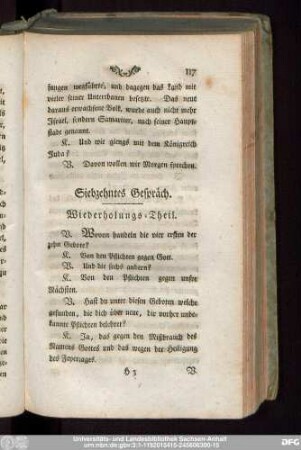 117
burgen wegführte, und dagegen das Land mit
vieler seiner Unterthanen besetzte. Das neue
daraus erwachsene Volk, wurde auch nicht mehr
Israel, sondern Samariter, nach seiner Haupt-
stadt genannt.
K. Und wie giengs mit dem Königreich
Juda?
V. Davon wollen wir Morgen sprechen.
Siebzehntes Gespräch.
Wiederholungs-Theil.
V. Wovon handeln die vier ersten der
zehn Gebote?
K. Von den Pflichten gegen Gott.
V. Und die sechs andern?
K. Von den Pflichten gegen unsre
Nächsten.
V. Hast du unter diesen Geboten welche
gefunden, die dich über neue, die vorher unbe-
kannte Pflichten belehrt?
K. Ja, das gegen den Mißbrauch des
Namens Gottes und das wegen der Heiligung
des Feyertages.
H 3 V.
Universitäts- und Landesbibliothek Sachsen-Anhalt
DFG